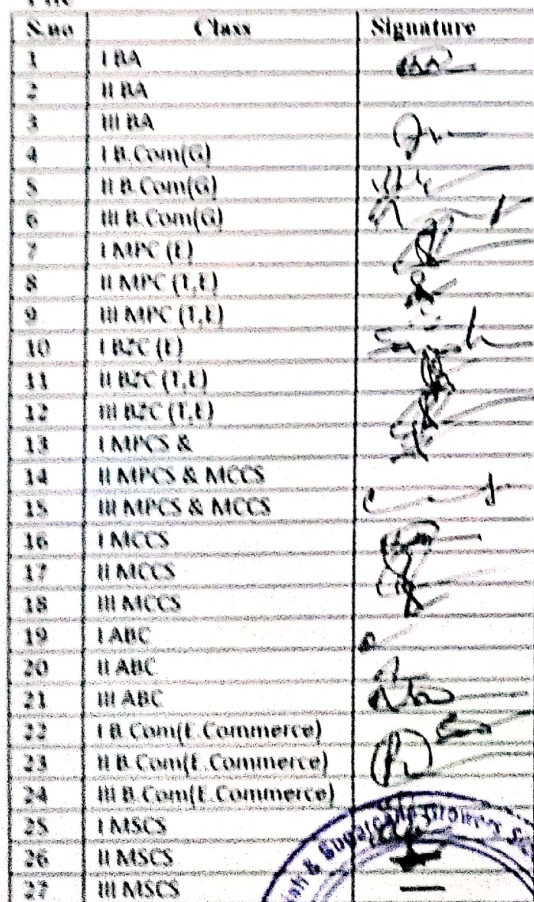 S.no Class Signature
1 I BA
2 II BA
3 III BA
4 I B.Com(G)
5 II B.Com(G)
6 III B.Com(G)
7 I MPC (E)
8 II MPC (T,E)
9 III MPC (T,E)
10 I BZC (E)
11 II BZC (T,E)
12 III BZC (T,E)
13 I MPCS &
14 II MPCS & MCCS
15 III MPCS & MCCS
16 I MCCS
17 II MCCS
18 III MCCS
19 I ABC
20 II ABC
21 III ABC
22 I B.Com(E.Commerce)
23 II B.Com(E.Commerce)
24 III B.Com(E.Commerce)
25 I MSCS
26 II MSCS
27 III MSCS
& Sugarcane Growers